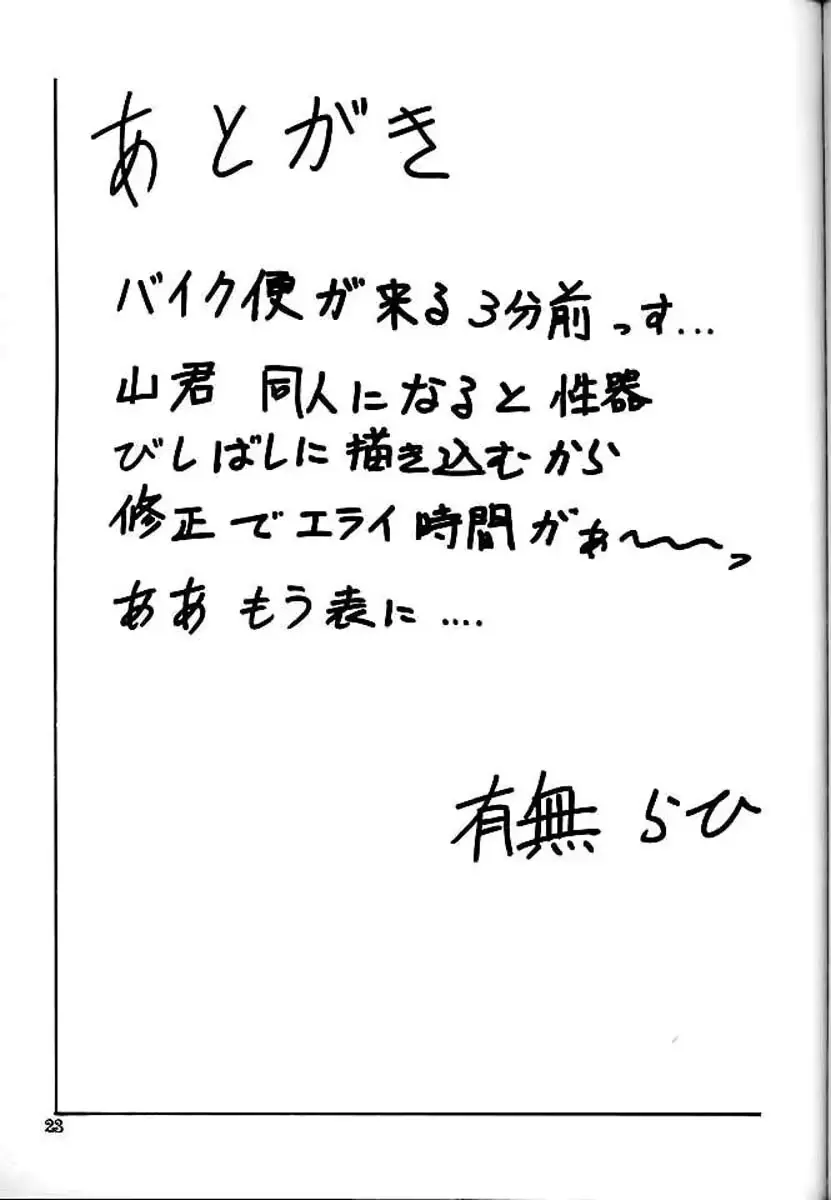 あとがき
バイク便が来る3分前っす...
山君 同人になると性器
びしばしに描き込むから
修正でエライ時間がぁ〜〜〜っ
ああ もう表に....
有無らひ
23